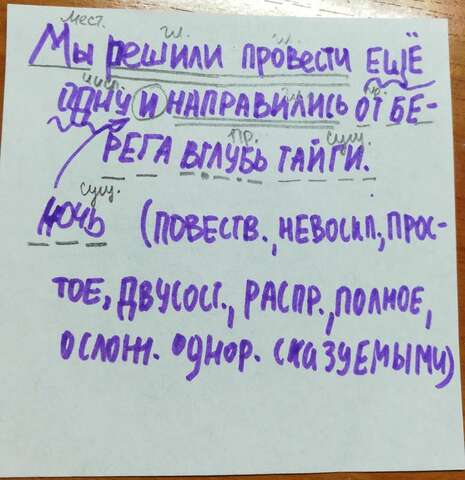 мест. гл. гл.
Мы решили провести ЕЩЁ
числ. гл. пр.
ОДНУ И НАПРАВИЛИСЬ ОТ БЕ-
пр. сущ.
РЕГА ВГЛУБЬ ТАЙГИ.
сущ.
НОЧЬ (ПОВЕСТВ., НЕВОСКЛ, ПРОС-
ТОЕ, ДВУСОСТ., РАСПР., ПОЛНОЕ,
ОСЛОЖН. ОДНОР. СКАЗУЕМЫМИ)